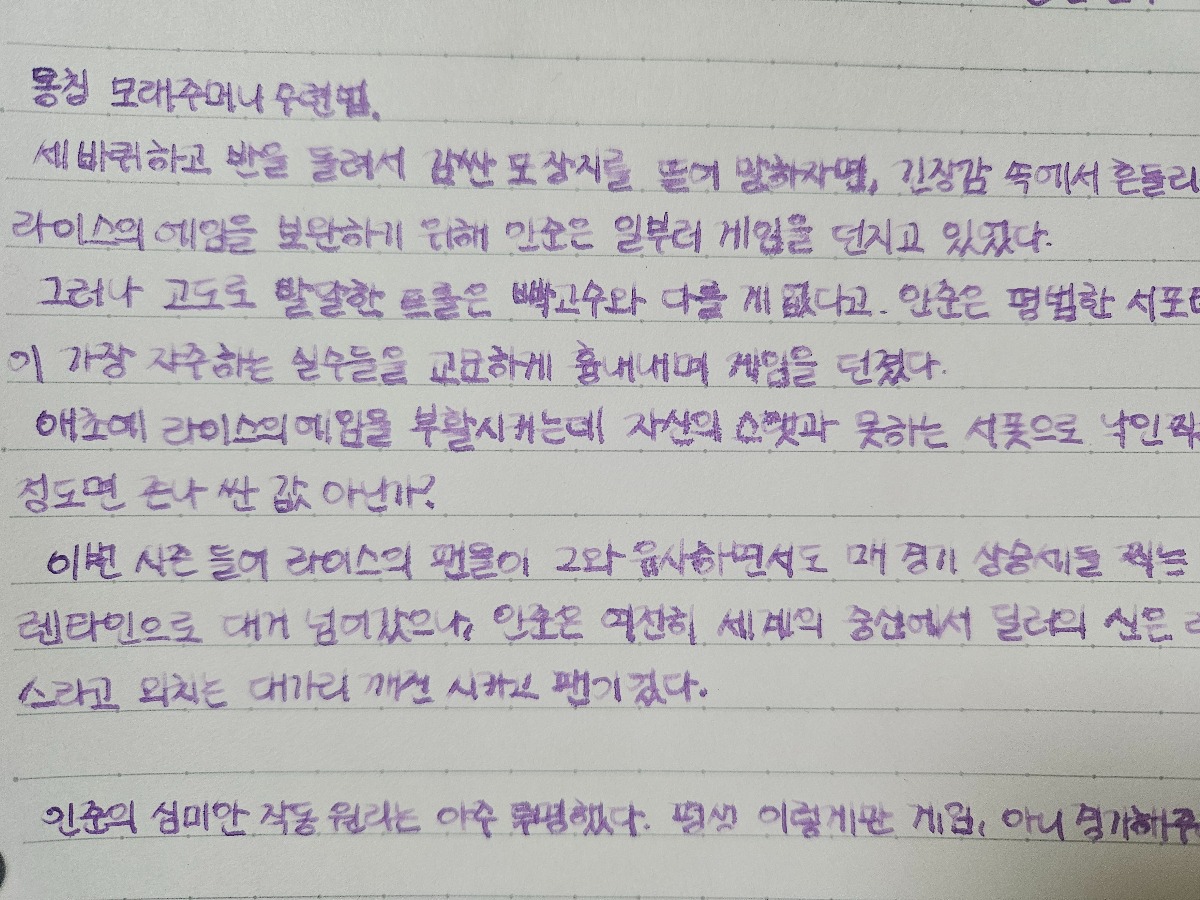 몽침 모래주머니 수련법.
세 바퀴하고 반을 돌려서 감싼 포장지를 뜯어 말하자면, 긴장감 속에서 흔들리
라이스의 에임을 보완하기 위해 인준은 일부러 게임을 던지고 있었다.
그러나 고도로 발달한 트롤은 빡고수와 다를 게 없다고. 인준은 평범한 서포터
이 가장 자주하는 실수들을 교묘하게 흉내내며 게임을 던졌다.
애초에 라이스의 에임을 부활시키는데 자신의 스탯과 못하는 서폿으로 낙인 찍
정도면 존나 싼 값 아닌가?
이번 시즌 들어 라이스의 팬들이 그와 유사하면서도 매 경기 상승세를 찍는
렌타인으로 대거 넘어갔으나, 인준은 여전히 세계의 중심에서 딜러의 신은 라
스라고 외치는 대가리 깨진 시카고 팬이었다.
인준의 심미안 작동 원리는 아주 투명했다. 평생 이렇게만 게임, 아니 경기해주